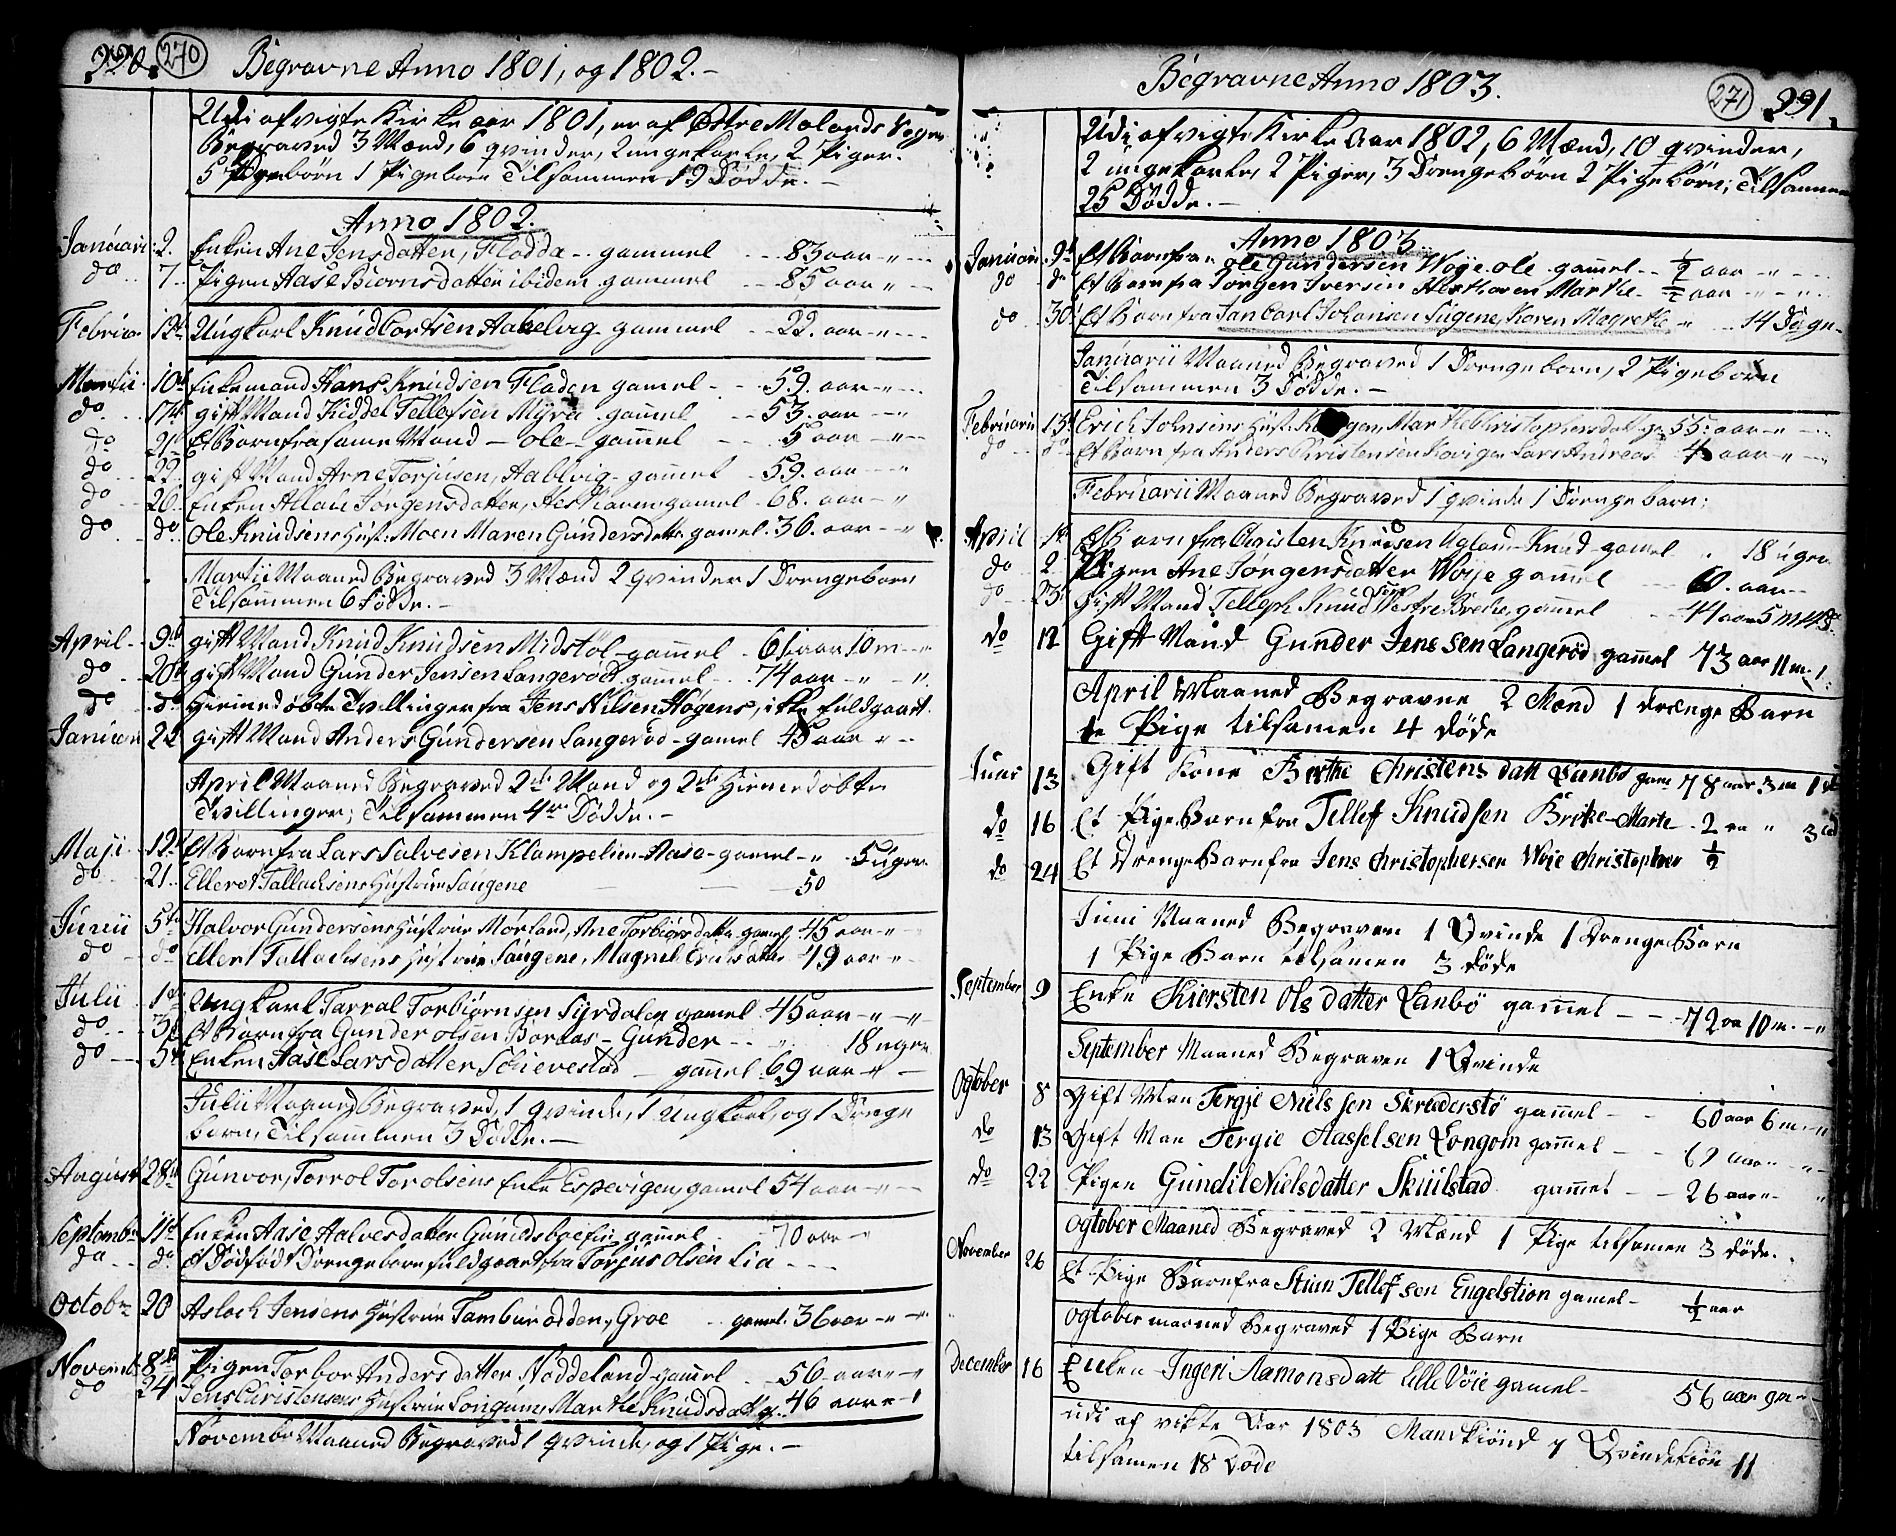 220. 270 Begravne Anno 1801, og 1802.-
Udi afvigte Kirke aar 1801, er af Østre Molands Sogn
Begraved 3 Mænd, 6 qvinder, 2 ungekarle, 2 Piger.
5 børn 1 Pigebarn Tilsammen 19 Dödde.-
Anno 1802.
Januarii 2. Enken Ane Jensdatter, Flodda - gammel - 83 aar
do 7. Pigen Aase Biørnsdatter ibidem gammel - 85 aar
Februar 12te Ungkarl Knud Carlsen Aabelvig gammel - 22. aar
Martii 10de Enkemand Hans Knudsen Fladen gamel - 59. aar
do 17de gift Mand Kiddel Tellefsen Myra gamel - 53. aar
do 21. Et Barn fra same Mand - Ole - gamel - 5 aar
do 22. gift Mand Arne Torjusen, Aabelvig - gamel - 59. aar
do 26. Enken Jørgensdatter, Hesthaven gamel 68. aar
do do Ole Knudsens Hust: Moen Maren Gundersdatter gamel. 36. aar
Martii Maaned Begraved 3 Mænd 2 qvinder 1 Drengebarn
Tilsammen 6 Dödde.-
April 9de gift Mand Knud Knudsen Midstöl - gamel - 61 aar 10 m
do 20de gift Mand Gunder Jensen Langeröd gamel - 74 aar
do do Hiemedöbte Tvillinger fra Jens Nilsen Högens, ikke fuldgaaet.
Januari 22 gift Mand Anders Gundersen Langeröd - gamel 45 aar
April Maaned Begraved 2de Mænd og 2de Hiemedöbte
Tvillinger; Tilsammen 4re Dödde.-
Maji 12te Et Barn fra Lars Salvesen Klampelien Aase - gamel - 5 uger
do 21. Ellert Tallachsens Hustrue Saugene - 50
Junii 5te Halvor Gundersens Hustrue Morland, Ane Torbiørsdatter gamel 45 aar
do do Ellert Tallachsens Hustrue Saugene, Magnil Erichsdatter 49 aar
Julii 1te Ungkarl Tarral Torbiørnsen Syrdalen gamel 45 aar
do 3. Et Barn fra Gunder Olsen Boraas - Gunder - 18 uger
do 5te Enken Aase Larsdatter Schevestad - gamel 69 aar
Julii Maaned Begraved, 1 qvinde, 1 Ungkarl, og 1 Drenge
barn, Tilsammen 3 Dödde.-
August 28de Gunvor, Torrol Torolsens Enke Espevigen, gamel 54 aar
Septembr 11te Enken Aase Halvesdatter gamel 70 aar
do do Et Dödfödt Drengebarn fuldgaaet fra Torjus Olsen Lia
Octobr 20 Aslach Jensens Hustrue Tambur odden, Groe gamel. 36 aar
Novemb. 8de Pigen Torbor Andersdatter Noddeland gamel - 56 aar
do 24 Jens Christensens Hustrue Longum, Marthe Knudsdatt g. 46 aar
Novembr Maaned Begraved 1 qvinde, og 1 Pige.-
Begravne Anno 1803. 271 291.
Udi afvigte Kirke Aar 1802, 6 Mænd, 10 qvinder,
2 ungekarle, 2 Piger, 3 Drengebörn 2 Pigebörn; Tilsammen
25 Dödde.-
Anno 1803
Januari 9de Et Barn fra Ole Gundersen Woje Ole gamel - ½ aar
do do Et Barn fra Jørgen Iversen Hesthaven Marthe - ½ aar
do 30 Et Barn fra Jan Carl Johansen Sugene, Karen Magrethe 14 Dage
Januarii Maaned Begraved 1 Drengebarn, 2 Pigebørn
Tilsammen 3 Dödde.-
Februarii 13. Erich Johnsens Hust: Marthe Christophersdatt g. 55. aar
do do Et Barn fra Anders Christensen Kovigen Lars Andreas 4 aar
Februarii Maaned Begraved 1 qvinde 1 Drenge barn;
April 1te Et Barn fra Christen Knudsen Uglam Knud - gamel 18 ugen
do 2 Pigen Ane Jørgensdatter Woije gamel 60. aar
do 23. gift Mand Telleph Knudsen Vestre Breke, gamel 44 aar 5 m
do 12 Gift Mand Gunder Jenssen Langeröd gamel 73 aar 11 m.
April Maaned Begravne 2 Mænd 1 drænge Barn
1 Pige tilsamen 4 döde
Juni 13 Gift Kone Birthe Christens datt Lanbö gam 78 aar 3 m
do 16 Et Pige Barn fra Tellef Knudsen Breke - Marte - 2 aa
do 24 Et Drenge Barn fra Jens Christophersen Woie Christopher ½
Juni Maaned Begraven 1 Qvinde 1 Drenge Barn
1 Pige Barn tilsamen 3 döde
September 9 Enke Kiersten Ols datter Lanbö gamel - 72 aa 10 m.
September Maaned Begraven 1 Qvinde
Ogtober 8 Gift Man Tergje Niels sen Skrederstö gamel - 60 aar 6 m
do 13 Gift Man Tergie Aassel sen Longom gamel - 69 aar
do 22 Pigen Gundil Nielsdatter Skiulstad gamel - 26 aar
Ogtober Maaned Begraved 2 Mænd 1 Pige tilsamen 3 döde.
November 26 Et Pige Barn fra Stian Tellef sen Engelstion gamel - ½ aar
ogtober maaned Begraved 1 Pige Barn
December 16 Enken Ingeri Aamonsdatt Lille Vöie gamel - 56 aar 9 m
udi af vikte Aar 1803 Mandkiönd 7 Qvindekiön 11
tilsamen 18 Döde